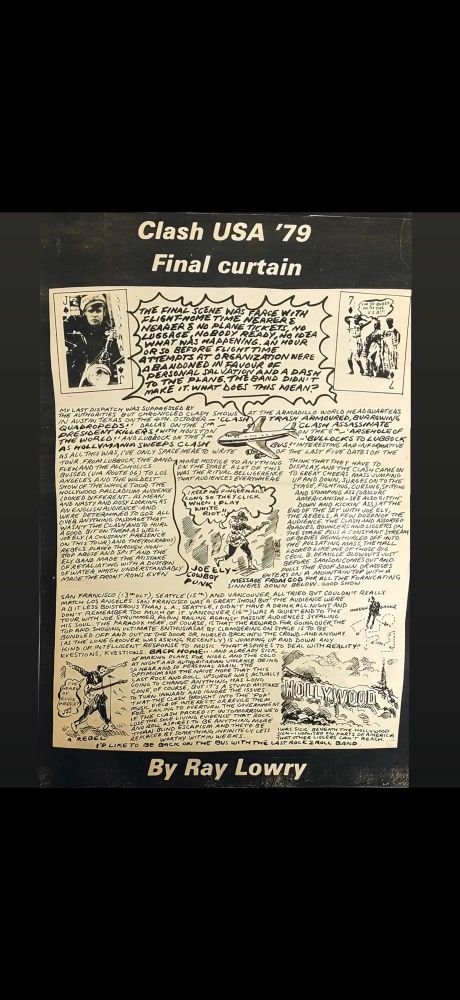 Clash USA '79
Final curtain
THE FINAL SCENE WAS FARCE WITH
FLIGHT-HOME TIME NEARER &
NEARER & NO PLANE TICKETS, NO
LUGGAGE, NOBODY READY, NO IDEA
WHAT WAS HAPPENING. AN HOUR
OR SO BEFORE FLIGHT TIME
ATTEMPTS AT ORGANIZATION WERE
ABANDONED IN FAVOUR OF
PERSONAL SALVATION AND A DASH
TO THE PLANE. THE BAND DIDN'T
MAKE IT. WHAT DOES THIS MEAN?
J
7
MY LAST DISPATCH WAS SUPPRESSED BY
THE AUTHORITIES BUT CONCERNED CLASH SHOWS AT THE ARMADILLO WORLD HEADQUARTERS
IN AUSTIN TEXAS ON THE 4TH OCTOBER "CLASH TRASH ARMOURED, BURROWING
QUADROPEDS" DALLAS ON THE 5TH "CLASH ASSASSINATE
PRESIDENT KILLERS" HOUSTON ON THE 6TH "ARSEHOLE OF
THE WORLD" AND LUBBOCK ON THE 7TH "BULLOCKS TO LUBBOCK
AS HOLLYMANIA SWEEPS CLASH BUS!" INTERESTING AND INFORMATIVE
AS ALL THIS WAS, I'VE ONLY SPACE HERE TO WRITE OF THE LAST FIVE DATES OF THE
TOUR. FROM LUBBOCK, THE BAND
FLEW AND THE ALCOHOLICS
BUSSED (VIA ROUTE 66) TO LOS
ANGELES AND THE WILDEST
SHOW OF THE WHOLE TOUR. THE
HOLLYWOOD PALLADIUM AUDIENCE
LOOKED DIFFERENT. AS MEAN
AND NASTY AND DOSY LOOKING AS
AN ENGLISH AUDIENCE AND
WERE DETERMINED TO GOZ ALL
OVER ANYTHING ONSTAGE THAT
WASN'T THE CLASH AND TO HURL
A GOOD BIT ON THEM AS WELL.
JOE ELY (A CONSTANT PRESENCE
ON THIS TOUR) AND THE
REBELS PLAYED THROUGH NON-
STOP ABUSE AND SPIT AND THE
ELY BAND MADE THE MISTAKE
OF RETALIATING WITH A DUSTBIN
OF WATER WHICH UNDERSTANDABLY
MADE THE FRONT ROWS EVEN
MORE HOSTILE TO ANYTHING
ON THE STAGE. A LOT OF THIS
WAS THE RITUAL BELLIGERENCE
THAT AUDIENCES EVERYWHERE
I KEEP MY FINGERNAILS
LONG SO THEY CLICK
WHEN I PLAY
WHITE
RIOT!
JOE ELY
COWBOY
PUNK
THINK THAT THEY HAVE TO
DISPLAY, AND THE CLASH CAME ON
TO GREAT CHEERS, MASS JUMPING
UP AND DOWN, SURGES ONTO THE
STAGE, FIGHTING, CURSING, SPITTING
AND STOMPING ASS (OBSCURE
AMERICANISM - SEE ALSO GITTIN'
DOWN AND KICKIN' ASS) AT THE
END OF THE SET WITH JOE ELY,
THE REBELS, A FEW DOZEN OF THE
AUDIENCE, THE CLASH AND ASSORTED
ROADIES, BOUNCERS AND LIGGERS ON
THE STAGE PLUS A CONSTANT STREAM
OF BODIES BEING HURLED OFF INTO
THE PULSATING MASS, THE HALL
LOOKED LIKE ONE OF THOSE BIG
CECIL B DEMILLE BLOWOUTS JUST
BEFORE SAMSON COMES OUT AND
PULLS THE ROOF DOWN OR MOSES
ENTERS ON A MOUNTAIN TOP WITH A
MESSAGE FROM GOD FOR ALL THE FORNICATING
SINNERS DOWN BELOW. GOOD SHOW
SAN FRANCISCO (13TH OCT), SEATTLE (15TH) AND VANCOUVER ALL TRIED BUT COULDN'T REALLY
MATCH LOS ANGELES. SAN FRANCISCO WAS A GREAT SHOW BUT THE AUDIENCE WERE
A BIT LESS BOISTEROUS THAN L.A., SEATTLE, I DIDN'T HAVE A DRINK ALL NIGHT AND
DON'T REMEMBER TOO MUCH OF IT. VANCOUVER (16TH) WAS A QUIET END TO THE
TOUR WITH JOE STRUMMER, AGAIN, RAILING AGAINST PASSIVE AUDIENCES STEALING
HIS SOUL. THE PARADOX HERE, OF COURSE, IS THAT THE REWARD FOR GOING OVER THE
TOP AND SHOWING ULTIMATE ENTHUSIASM BY CLAMBERING ON STAGE IS TO BE
BUNDLED OFF AND OUT OF THE DOOR OR HURLED BACK INTO THE CROWD. AND ANYWAY
(AS THE LONE GROOVER WAS ASKING RECENTLY) IS JUMPING UP AND DOWN ANY
KIND OF INTELLIGENT RESPONSE TO MUSIC THAT ASPIRES TO DEAL WITH REALITY?
KVESTIONS, KVESTIONS. BACK HOME... AND ALREADY SICK
OF MAKING PLANS FOR NIGEL AND THE COLD
AT NIGHT AND AUTHORITARIAN VIOLENCE BEING
SO NEAR AND SO PERSONAL AGAIN. THE
OPTIMISM AND THE NAIVE HOPE THAT THIS
LAST ROCK AND ROLL UPSURGE WAS ACTUALLY
GOING TO CHANGE ANYTHING HAS LONG
GONE, OF COURSE, BUT IT'S A STUPID MISTAKE
TO TURN INWARD AND IGNORE THE ISSUES
THAT THE CLASH BROUGHT INTO THE 'POP'
FIELD OF INTEREST, OR REVILE THEM
FOR FAILING TO OVERTURN THE GOVERNMENT.
IF THE CLASH PACKED IT IN TOMORROW WE'D
LOSE THE SOLE LIVING EVIDENCE THAT ROCK
CULTURE ASPIRES TO BE ANYTHING MORE
THAN BLIND ESCAPISM AND THEY'D BE
REPLACED BY SOMETHING INFINITELY LESS
WORTHY WITHIN WEEKS.
A REBEL
HOLLYWOOD
I WAS SICK BENEATH THE HOLLYWOOD
SIGN - I VOMITED ON PARTS OF AMERICA
THAT OTHER LIGGERS CAN'T REACH.
I'D LIKE TO BE BACK ON THE BUS WITH THE LAST ROCK & ROLL BAND
By Ray Lowry